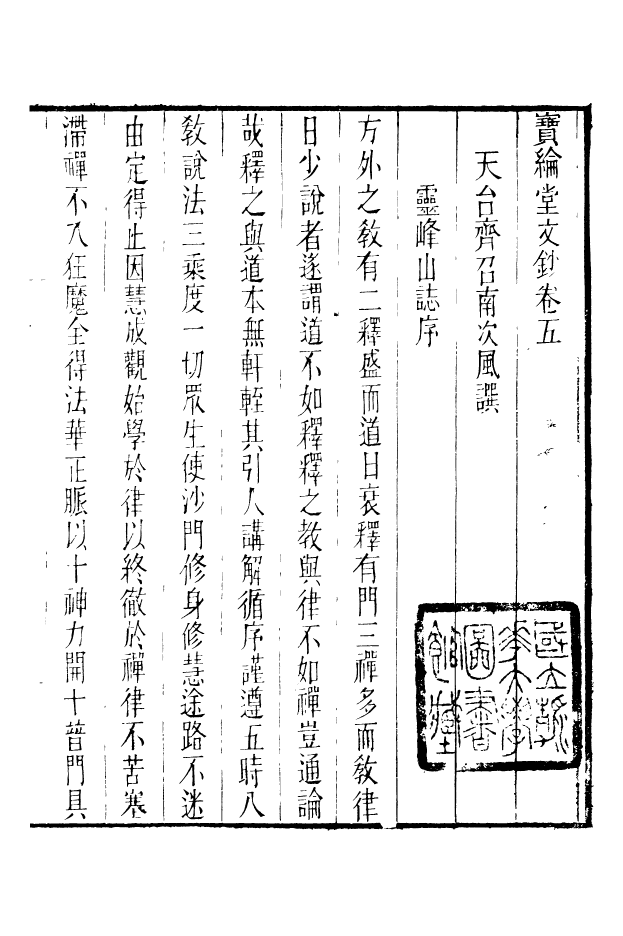 寶綸堂文鈔卷五
天台齊召南次風譔
靈峰山誌序
方外之敎有二釋盛而道日衰釋有門三禪多而敎律
日少說者遂謂道不如釋釋之教與律不如禪豈通論
哉釋之與道本無軒輊其引人講解循序謹遵五時八
敎說法三乘度一切眾生使沙門修身修慧途路不迷
由定得止因慧成觀始學於律以終徹於禪律不苦塞
滯禪不入狂魔全得法華正脈以十神力開十普門具
國立清
華大學
圖書
館藏